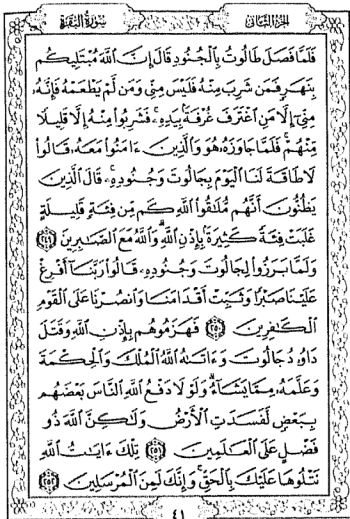 سُورَةُ البَقَرَةِ
الجُزْءُ الثَّانِي
فَلَمَّا فَصَلَ طَالُوتُ بِالْجُنُودِ قَالَ إِنَّ اللَّهَ مُبْتَلِيكُم
بِنَهَرٍ فَمَن شَرِبَ مِنْهُ فَلَيْسَ مِنِّي وَمَن لَّمْ يَطْعَمْهُ فَإِنَّهُ
مِنِّي إِلَّا مَنِ اغْتَرَفَ غُرْفَةً بِيَدِهِ فَشَرِبُوا مِنْهُ إِلَّا قَلِيلًا
مِّنْهُمْ فَلَمَّا جَاوَزَهُ هُوَ وَالَّذِينَ ءَامَنُوا مَعَهُ قَالُوا
لَا طَاقَةَ لَنَا الْيَوْمَ بِجَالُوتَ وَجُنُودِهِ قَالَ الَّذِينَ
يَظُنُّونَ أَنَّهُم مُّلَاقُوا اللَّهِ كَم مِّن فِئَةٍ قَلِيلَةٍ
غَلَبَتْ فِئَةً كَثِيرَةً بِإِذْنِ اللَّهِ وَاللَّهُ مَعَ الصَّابِرِينَ ٢٤٩
وَلَمَّا بَرَزُوا لِجَالُوتَ وَجُنُودِهِ قَالُوا رَبَّنَا أَفْرِغْ
عَلَيْنَا صَبْرًا وَثَبِّتْ أَقْدَامَنَا وَانصُرْنَا عَلَى الْقَوْمِ
الْكَافِرِينَ ٢٥٠ فَهَزَمُوهُم بِإِذْنِ اللَّهِ وَقَتَلَ
دَاوُدُ جَالُوتَ وَءَاتَاهُ اللَّهُ الْمُلْكَ وَالْحِكْمَةَ
وَعَلَّمَهُ مِمَّا يَشَاءُ وَلَوْلَا دَفْعُ اللَّهِ النَّاسَ بَعْضَهُم
بِبَعْضٍ لَّفَسَدَتِ الْأَرْضُ وَلَكِنَّ اللَّهَ ذُو
فَضْلٍ عَلَى الْعَالَمِينَ ٢٥١ تِلْكَ ءَايَاتُ اللَّهِ
نَتْلُوهَا عَلَيْكَ بِالْحَقِّ وَإِنَّكَ لَمِنَ الْمُرْسَلِينَ ٢٥٢
٤١